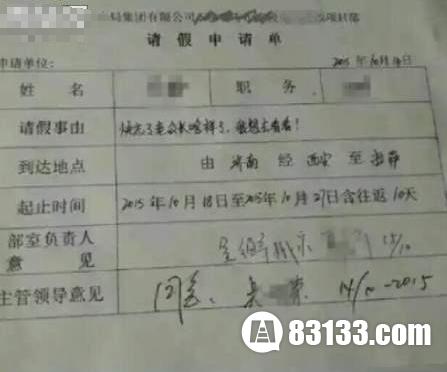 局集团有限公司 项目部
请假申请单
申请单位： 2015年10月14日
姓名 职务
请假事由 快忘了老公长啥样了，很想去看看！
到达地点 由 济南 经 西安 至 拉萨
起止时间 2015年10月18日至2015年10月27日含往返10天
部室负责人
意见 15/10
主管领导意见 同意. 14/10-2015
83133.com